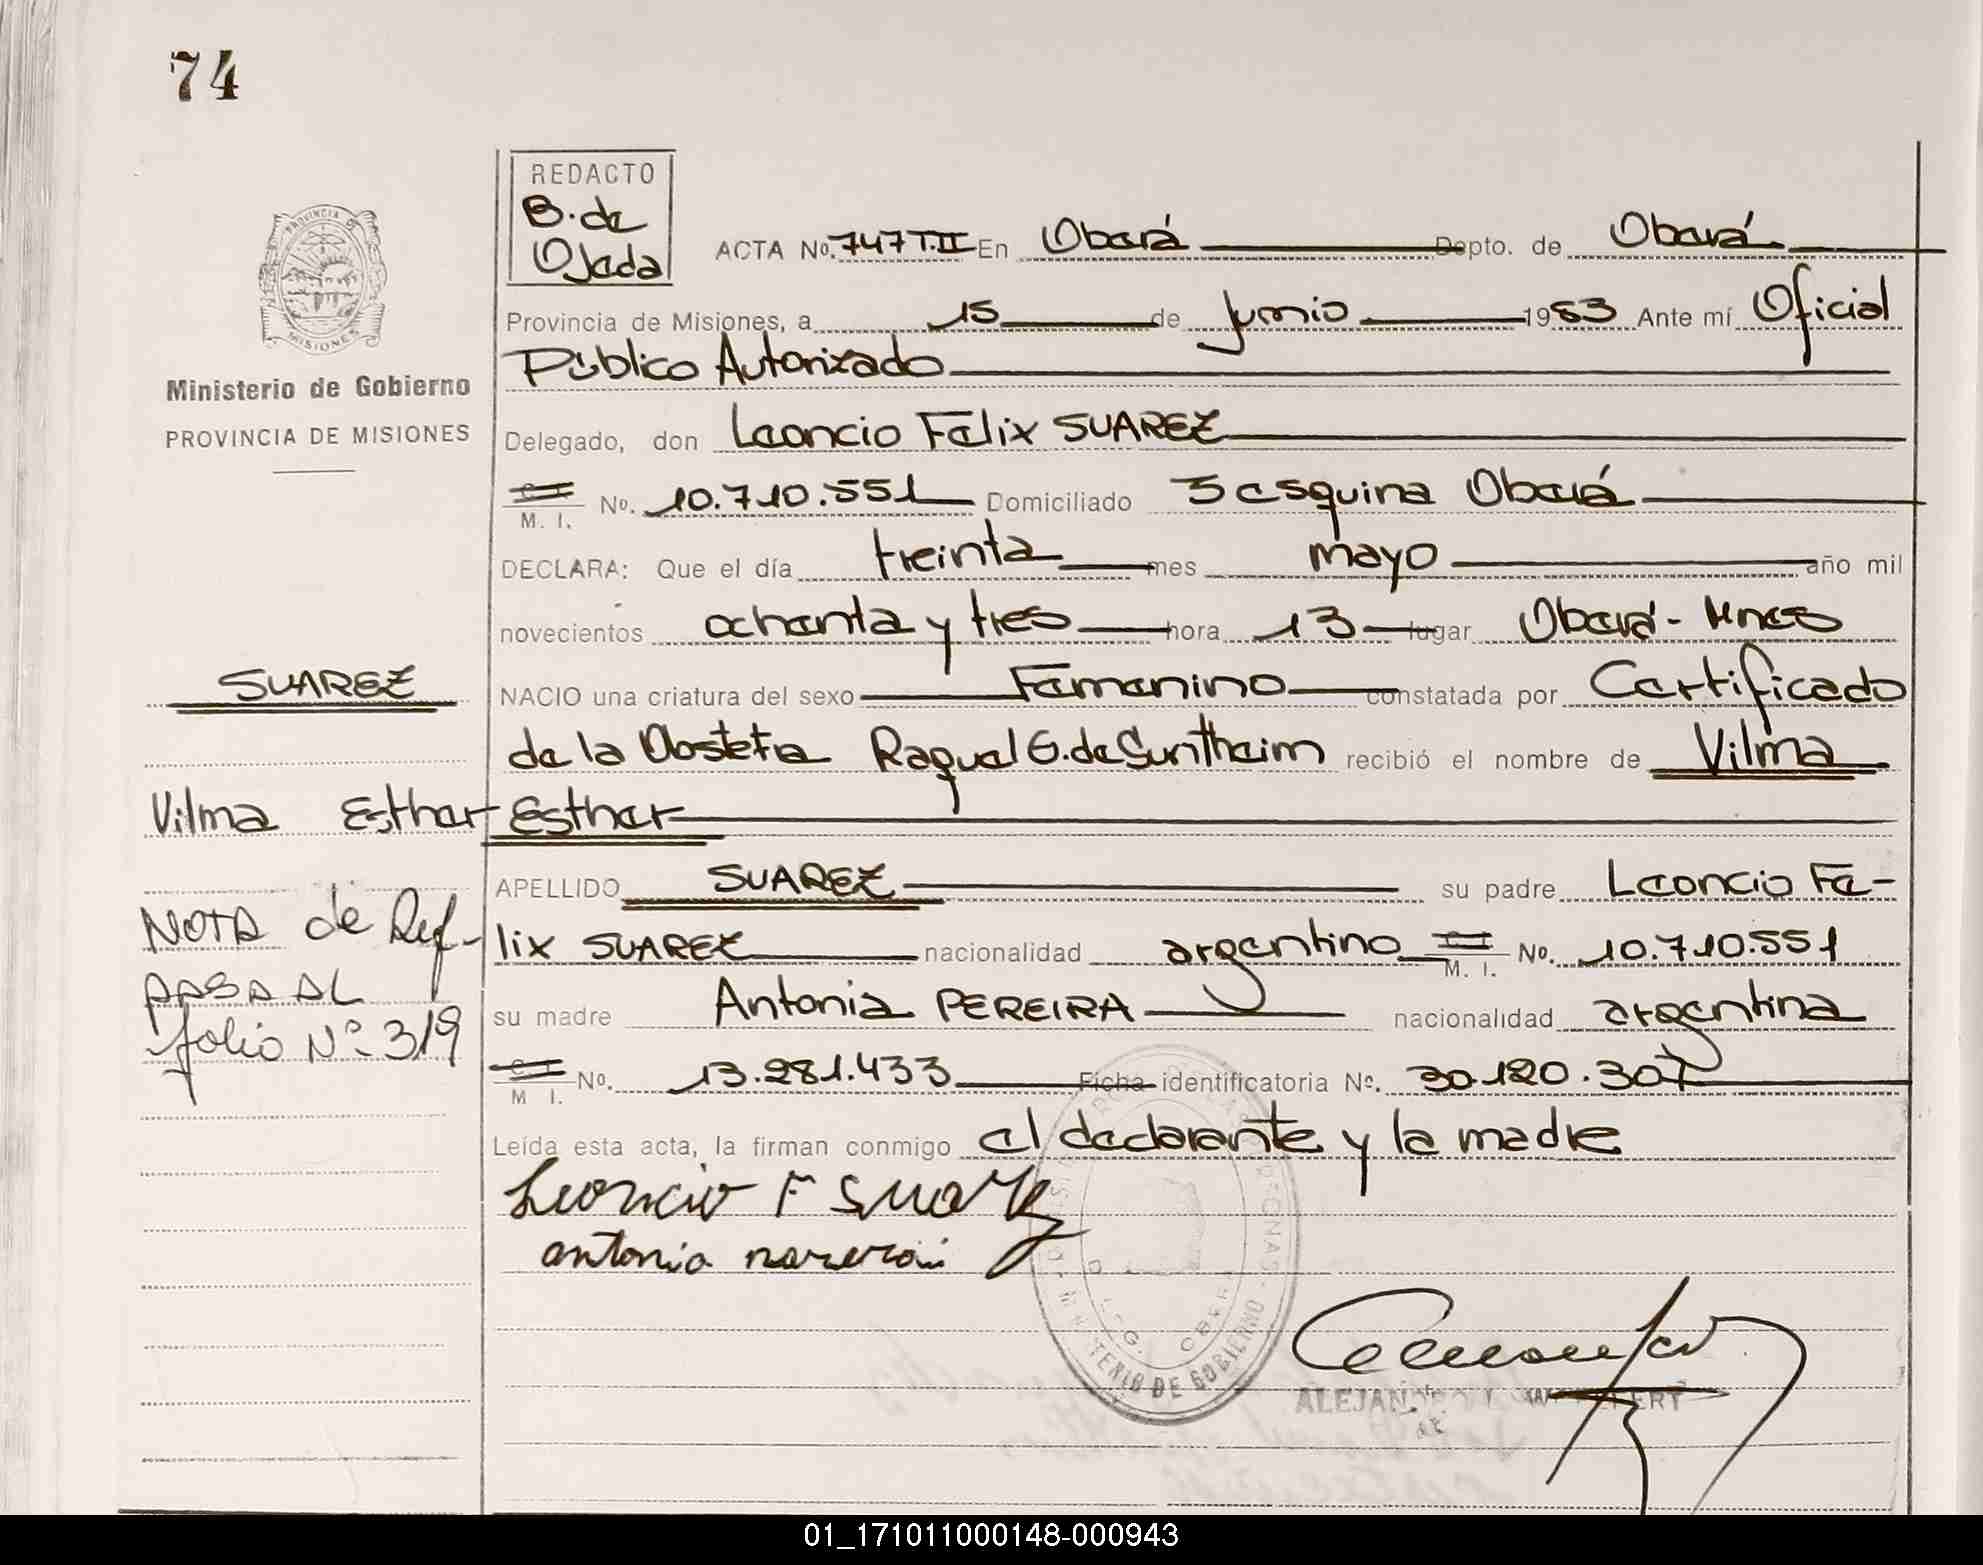 74
REDACTO
B. de
Ojeda
ACTA No. 747 T.II En Oberá Depto. de Oberá
PROVINCIA DE
MISIONES
Provincia de Misiones, a 15 de junio 1983 Ante mí Oficial
Público Autorizado
Ministerio de Gobierno
PROVINCIA DE MISIONES
Delegado, don Leoncio Felix SUAREZ
M. I. No. 10.710.551 Domiciliado 3 esquina Oberá
DECLARA: Que el día treinta mes mayo año mil
novecientos ochenta y tres hora 13 lugar Oberá - Mnes
SUAREZ
NACIO una criatura del sexo Femenino constatada por Certificado
de la Obstetra Raquel G. de recibió el nombre de Vilma
Vilma Esther
Esther
APELLIDO SUAREZ su padre Leoncio Fe-
NOTA de Ref-
lix SUAREZ nacionalidad argentino M. I. No. 10.710.551
PASA AL
su madre Antonia PEREIRA nacionalidad argentina
folio Nº 319
M I. No. 13.281.433 Ficha identificatoria No. 30.120.307
Leída esta acta, la firman conmigo el declarante y la madre
Leoncio F Suarez
antonia
MINISTERIO DE GOBIERNO
ALEJAN
01_171011000148-000943